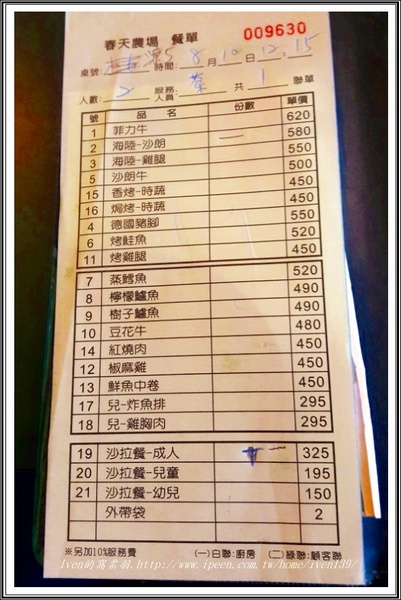 春天農場 餐單 009630
桌號: 時間: 8 月 10 日 12:15
人數: 2 服務人員: 葉 共 1 聯單
號 品名 份數 單價
1 菲力牛 620
2 海陸-沙朗 一 580
3 海陸-雞腿 550
5 沙朗牛 500
15 香烤-時蔬 450
16 焗烤-時蔬 450
4 德國豬腳 550
6 烤鮭魚 520
11 烤雞腿 450
7 蒸鱈魚 520
8 檸檬鱸魚 490
9 樹子鱸魚 490
10 豆花牛 480
14 紅燒肉 450
12 椒麻雞 450
13 鮮魚中卷 450
17 兒-炸魚排 295
18 兒-雞胸肉 295
19 沙拉餐-成人 一 325
20 沙拉餐-兒童 195
21 沙拉餐-幼兒 150
外帶袋 2
※另加10%服務費 (一)白聯:廚房 (二)綠聯:顧客聯
Iven的窩柔弱.http://www.ipeen.com.tw/home/iven139/